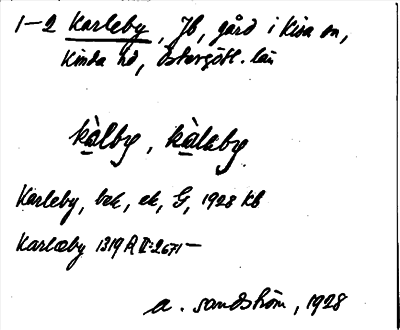 1-2 Karleby, Jb, gård i Kisa sn,
Kinda hd, Östergötl. län
kàlby, kàlaby
Karleby, bek, ek, G, 1928 kb
Karlæby 1319 R II:2671 —
A. Sandström, 1928